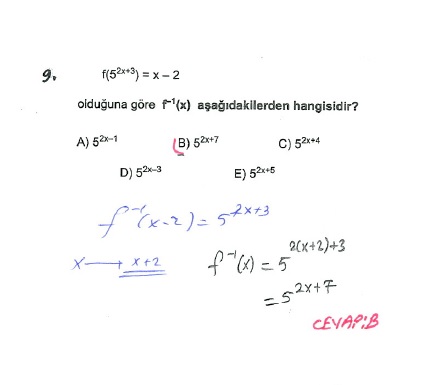 9. f(5²ˣ⁺³) = x – 2
olduğuna göre f⁻¹(x) aşağıdakilerden hangisidir?
A) 5²ˣ⁻¹ B) 5²ˣ⁺⁷ C) 5²ˣ⁺⁴
D) 5²ˣ⁻³ E) 5²ˣ⁺⁵
f⁻¹(x-2) = 5²ˣ⁺³
x → x+2 f⁻¹(x) = 5²⁽ˣ⁺²⁾⁺³
= 5²ˣ⁺⁷
CEVAP:B